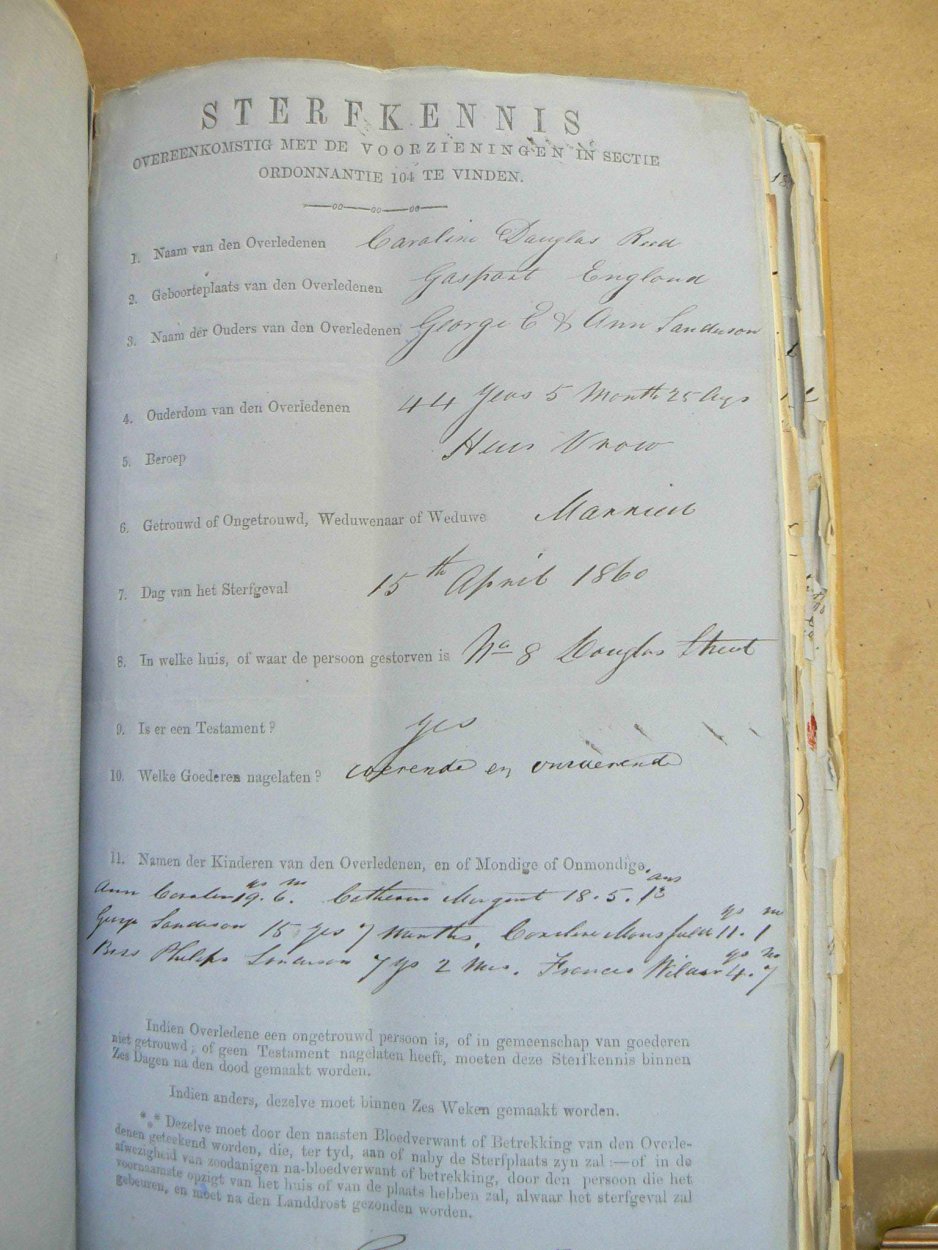 STERFKENNIS
OVEREENKOMSTIG MET DE VOORZIENINGEN IN SECTIE
ORDONNANTIE 104 TE VINDEN.
1. Naam van den Overledenen Caroline Douglas Reed
2. Geboorteplaats van den Overledenen Gosport England
3. Naam der Ouders van den Overledenen George E & Ann Sanderson
4. Ouderdom van den Overledenen 44 Years 5 Month 25 days
5. Beroep Huis Vrow
6. Getrouwd of Ongetrouwd, Weduwenaar of Weduwe Married
7. Dag van het Sterfgeval 15th April 1860
8. In welke huis, of waar de persoon gestorven is No 8 Douglas Street
9. Is er een Testament? yes
10. Welke Goederen nagelaten? roerende en onroerende
11. Namen der Kinderen van den Overledenen, en of Mondige of Onmondige.
Ann Caroline 19 ys 6 m. Catherine Margaret 18. 5.
George Sanderson 15 yrs 7 Months, Caroline Mansfield 11 ys 1 m
Philips Sanderson 7 ys 2 Ms. Frances 4 ys 7 m
Indien Overledene een ongetrouwd persoon is, of in gemeenschap van goederen
niet getrouwd, of geen Testament nagelaten heeft, moeten deze Sterfkennis binnen
Zes Dagen na den dood gemaakt worden.
Indien anders, dezelve moet binnen Zes Weken gemaakt worden.
*** Dezelve moet door den naasten Bloedverwant of Betrekking van den Overle-
denen geteekend worden, die, ter tyd, aan of naby de Sterfplaats zyn zal:—of in de
afwezigheid van zoodanigen na-bloedverwant of betrekking, door den persoon die het
voornaamste opzigt van het huis of van de plaats hebben zal, alwaar het sterfgeval zal
gebeuren, en moet na den Landdrost gezonden worden.